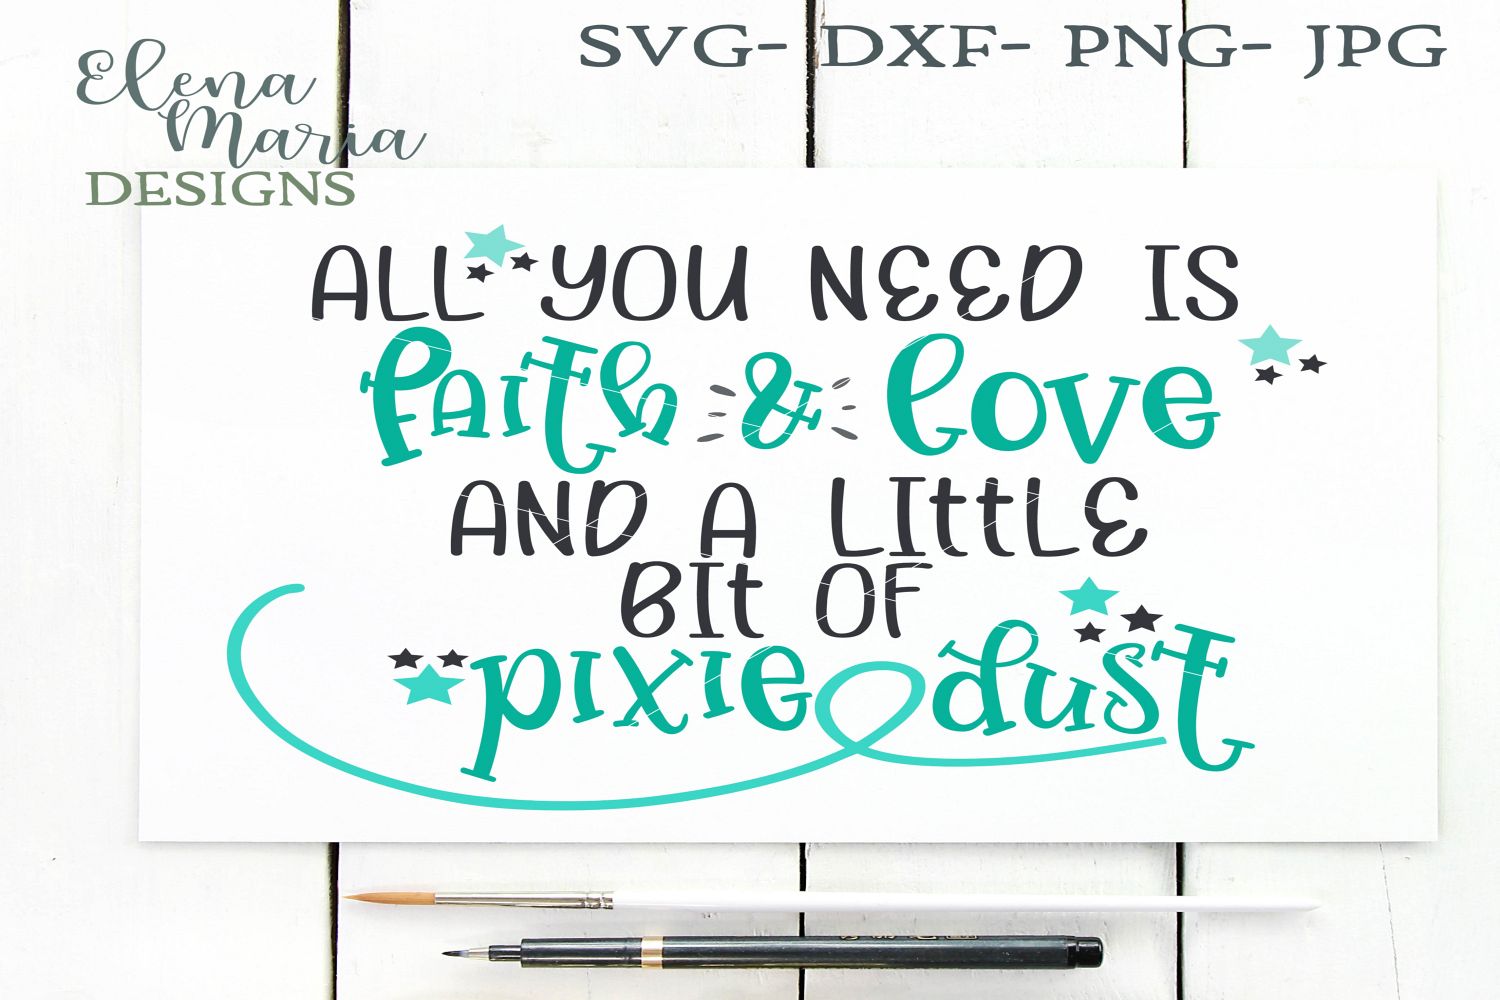 Elena
Maria
DESIGNS
SVG- DXF- PNG- JPG
ALL YOU NEED IS
faith & love
AND A LIttLE
BIt OF
pixie dust